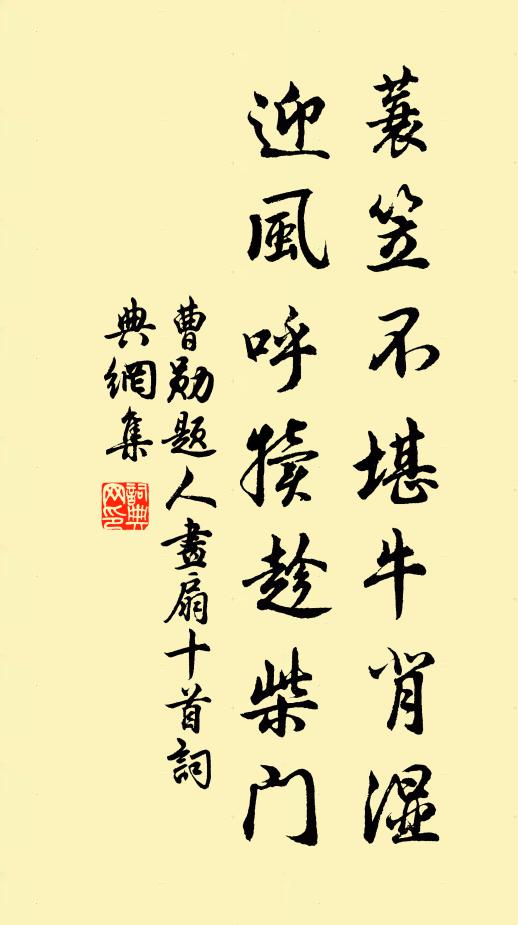 蓑笠不堪牛背濕
迎風呼犢趁柴門
曹勛題人畫扇十首詞
典網集
詞典網印